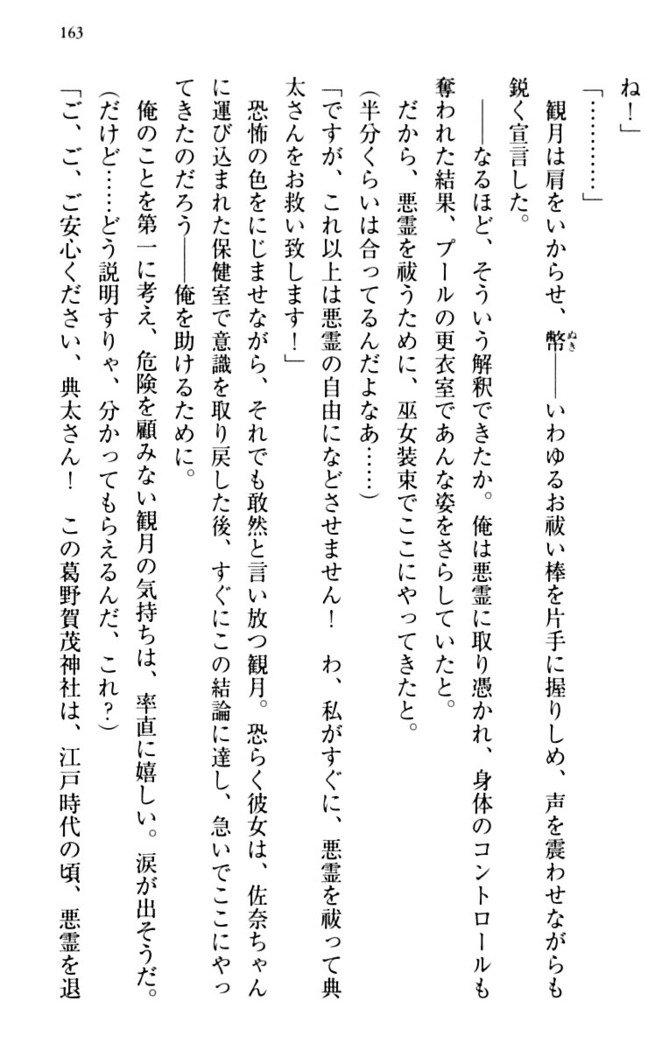 163
ね！」
「…………」
観月は肩をいからせ、幣――いわゆるお祓い棒を片手に握りしめ、声を震わせながらも
ぬさ
鋭く宣言した。
――なるほど、そういう解釈できたか。俺は悪霊に取り憑かれ、身体のコントロールも
奪われた結果、プールの更衣室であんな姿をさらしていたと。
だから、悪霊を祓うために、巫女装束でここにやってきたと。
（半分くらいは合ってるんだよなあ……）
「ですが、これ以上は悪霊の自由になどさせません！　わ、私がすぐに、悪霊を祓って典
太さんをお救い致します！」
恐怖の色をにじませながら、それでも敢然と言い放つ観月。恐らく彼女は、佐奈ちゃん
に運び込まれた保健室で意識を取り戻した後、すぐにこの結論に達し、急いでここにやっ
てきたのだろう――俺を助けるために。
俺のことを第一に考え、危険を顧みない観月の気持ちは、率直に嬉しい。涙が出そうだ。
（だけど……どう説明すりゃ、分かってもらえるんだ、これ？）
「ご、ご、ご安心ください、典太さん！　この葛野賀茂神社は、江戸時代の頃、悪霊を退